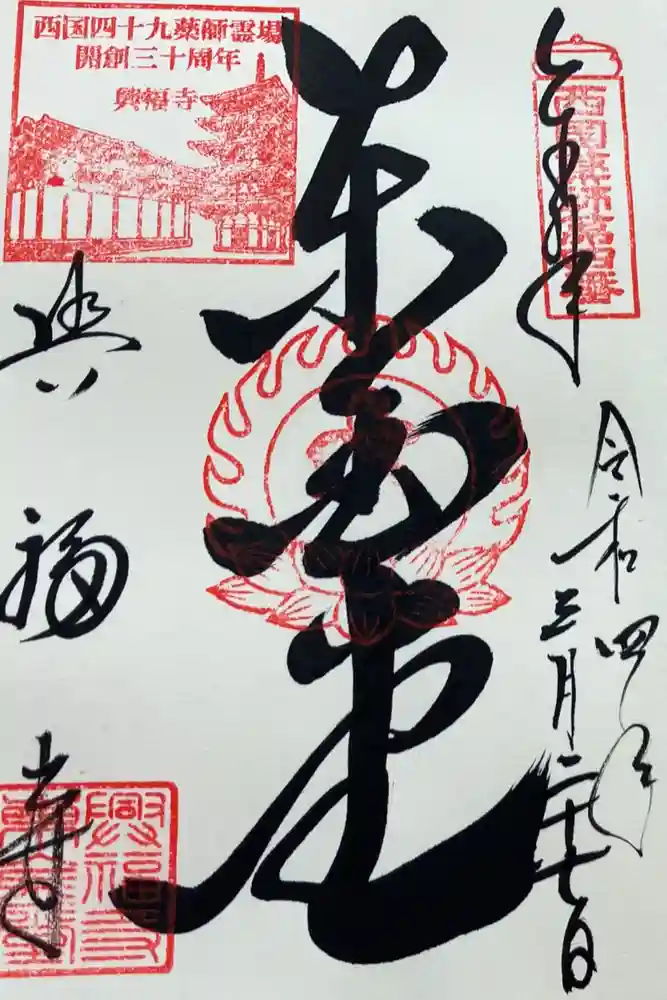 奉拝
西国薬師第四番
令和四年
三月二十七日
東金堂
西国四十九薬師霊場
開創三十周年
興福寺
興福寺
興福寺